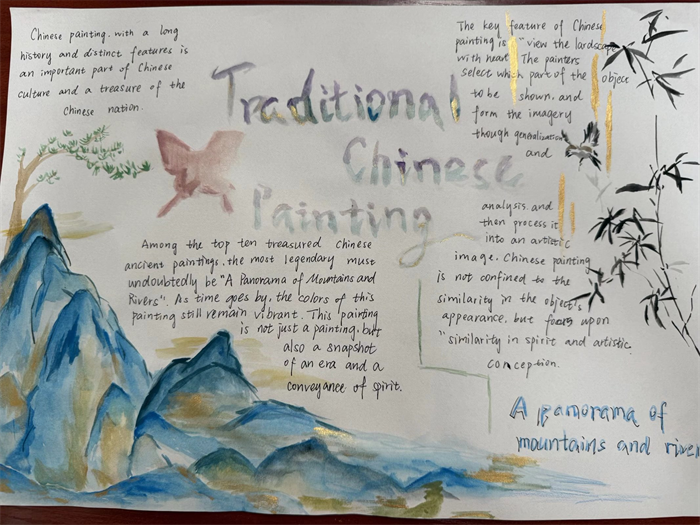 Chinese painting, with a long
history and distinct features is
an important part of Chinese
culture and a treasure of the
Chinese nation.
Traditional
Chinese
Painting
The key feature of Chinese
painting is "view the landscape
with heart. The painters
select which part of the object
to be shown, and
form the imagery
though generalisation
and
analysis, and
then process it
into an artistic
image. Chinese painting
is not confined to the
similarity in the object's
appearance, but focus upon
"similarity in spirit and artistic
conception.
Among the top ten treasured chinese
ancient paintings, the most legendary must
undoubtedly be "A Panorama of Mountains and
Rivers". As time goes by, the colors of this
painting still remain vibrant. This painting
is not just a painting, but
also a snapshot
of an era and a
conveyance of spirit.
A panorama of
mountains and river